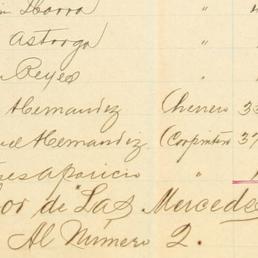 Ibarra "
Astorga "
Reyes "
Hernandez Chenero 33
Hernandez (Corpintero 37
Aparicio "
or de Las Mercedes
Al Número 2.